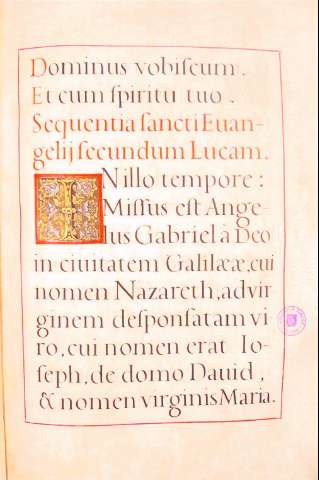 Dominus vobiſcum.
Et cum ſpiritu tuo.
Sequentia ſancti Euan-
gelij ſecundum Lucam.
IN illo tempore:
Miſſus eſt Ange-
lus Gabriel à Deo
in ciuitatem Galilææ, cui
nomen Nazareth, ad vir
ginem deſponſatam vi
ro, cui nomen erat Io-
ſeph, de domo Dauid,
& nomen virginis Maria.